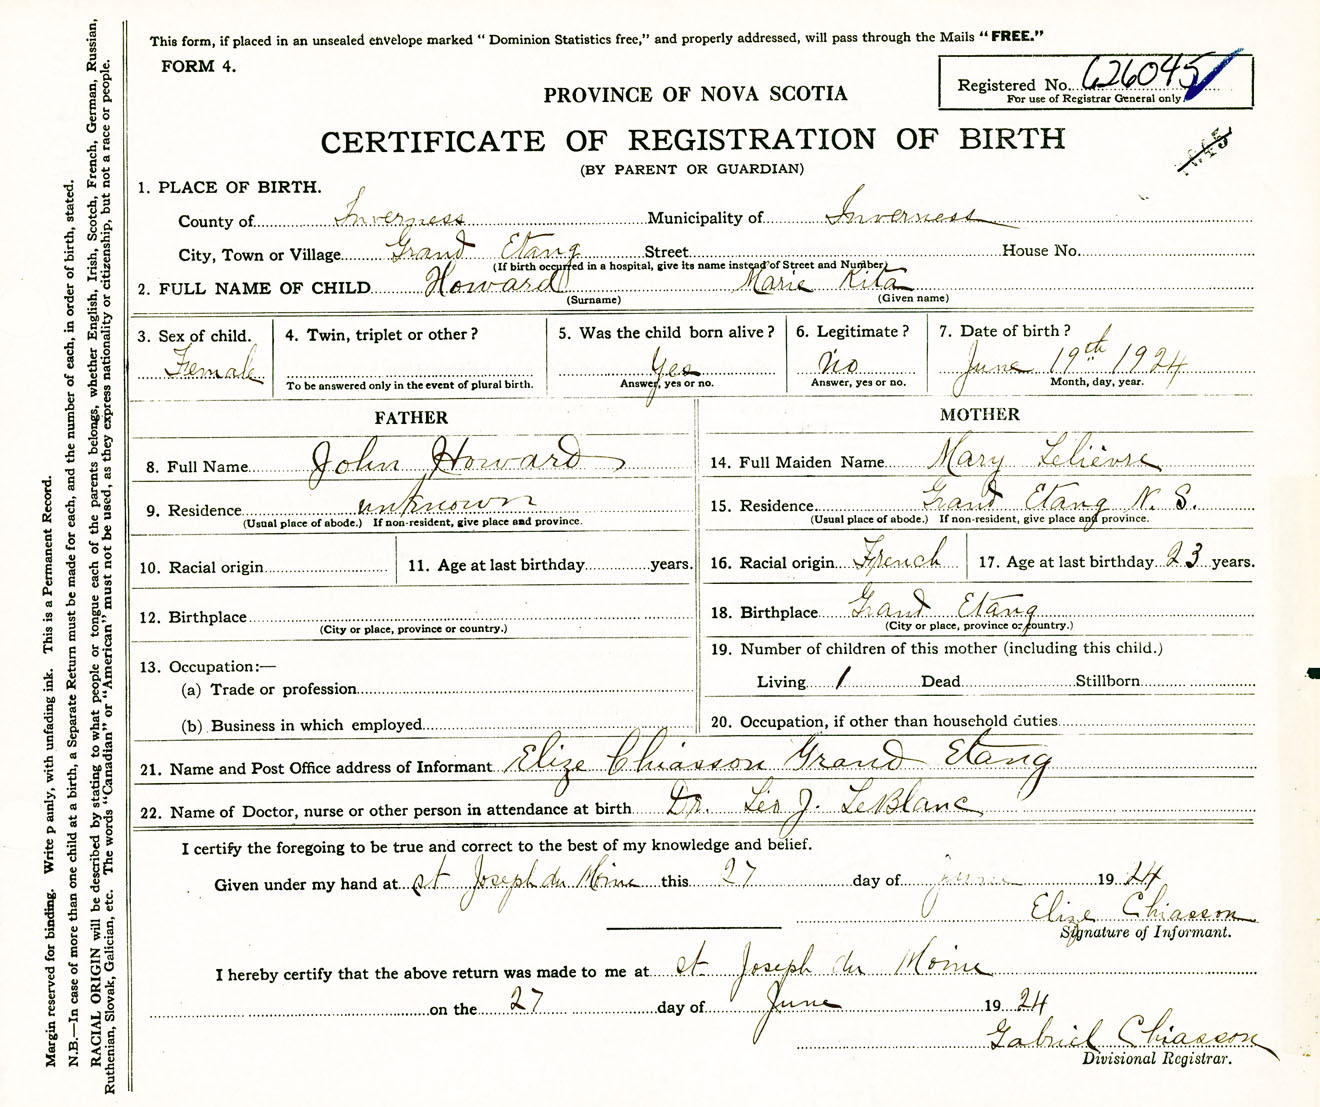 This form, if placed in an unsealed envelope marked "Dominion Statistics free," and properly addressed, will pass through the Mails "FREE."
FORM 4.
Registered No. 626045
For use of Registrar General only
PROVINCE OF NOVA SCOTIA
CERTIFICATE OF REGISTRATION OF BIRTH
(BY PARENT OR GUARDIAN)
1. PLACE OF BIRTH.
County of Inverness Municipality of Inverness
City, Town or Village Grand Etang Street House No.
(If birth occurred in a hospital, give its name instead of Street and Number)
2. FULL NAME OF CHILD Howard Marie Rita
(Surname) (Given name)
3. Sex of child. Female
4. Twin, triplet or other?
To be answered only in the event of plural birth.
5. Was the child born alive? Yes
Answer, yes or no.
6. Legitimate? no
Answer, yes or no.
7. Date of birth? June 19th 1924
Month, day, year.
FATHER
8. Full Name John Howard
9. Residence unknown
(Usual place of abode.) If non-resident, give place and province.
10. Racial origin 11. Age at last birthday years.
12. Birthplace
(City or place, province or country.)
13. Occupation:—
(a) Trade or profession
(b) Business in which employed
MOTHER
14. Full Maiden Name Mary Lelièvre
15. Residence Grand Etang N. S.
(Usual place of abode.) If non-resident, give place and province.
16. Racial origin French 17. Age at last birthday 23 years.
18. Birthplace Grand Etang
(City or place, province or country.)
19. Number of children of this mother (including this child.)
Living 1 Dead Stillborn
20. Occupation, if other than household duties
21. Name and Post Office address of Informant Elize Chiasson Grand Etang
22. Name of Doctor, nurse or other person in attendance at birth Dr. Léo J. LeBlanc
I certify the foregoing to be true and correct to the best of my knowledge and belief.
Given under my hand at st Joseph du Moine this 27 day of june 19 24
Elize Chiasson
Signature of Informant.
I hereby certify that the above return was made to me at st Joseph du Moine
on the 27 day of June 19 24
Gabriel Chiasson
Divisional Registrar.
Margin reserved for binding. Write p ainly, with unfading ink. This is a Permanent Record.
N.B.—In case of more than one child at a birth, a Separate Return must be made for each, and the number of each, in order of birth, stated.
RACIAL ORIGIN will be described by stating to what people or tongue each of the parents belongs, whether English, Irish, Scotch, French, German, Russian,
Ruthenian, Slovak, Galician, etc. The words "Canadian" or "American" must not be used, as they express nationality or citizenship, but not a race or people.